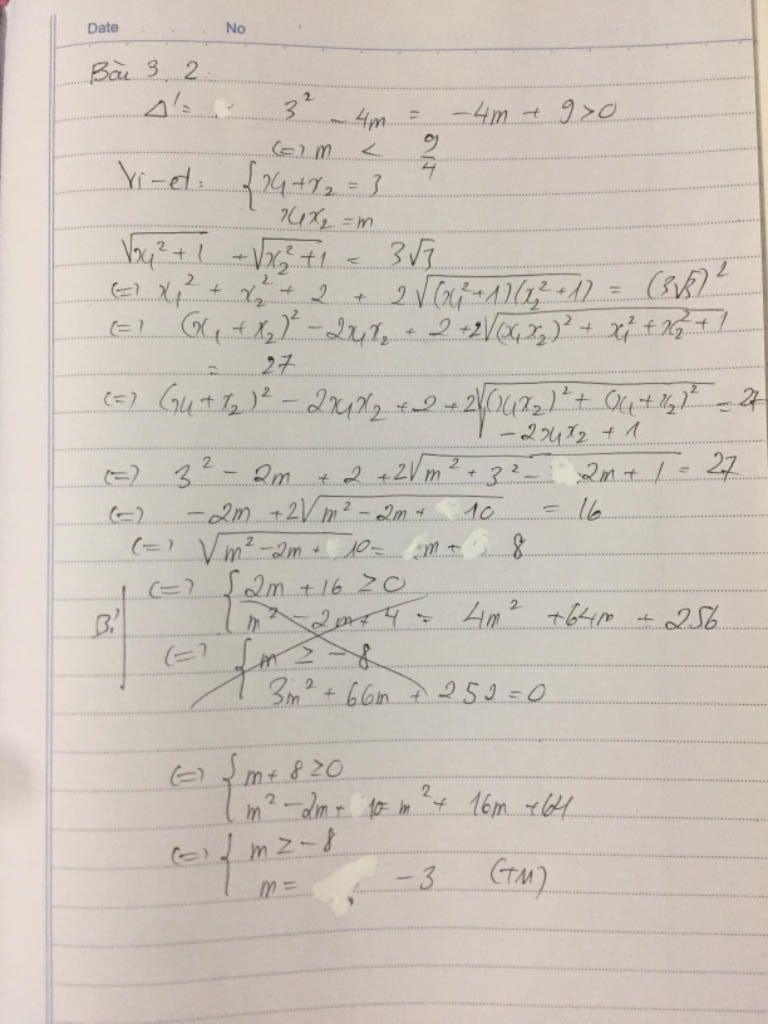 Date No
Bài 3, 2.
Δ' = 3² - 4m = -4m + 9 > 0
(=) m < 9/4
Vi-et: { x₁ + x₂ = 3
x₁x₂ = m
√(x₁² + 1) + √(x₂² + 1) = 3√3
(=) x₁² + x₂² + 2 + 2√((x₁² + 1)(x₂² + 1)) = (3√3)²
(=) (x₁ + x₂)² - 2x₁x₂ + 2 + 2√((x₁x₂)² + x₁² + x₂² + 1)
= 27
(=) (x₁ + x₂)² - 2x₁x₂ + 2 + 2√((x₁x₂)² + (x₁ + x₂)² = 27
- 2x₁x₂ + 1
(=) 3² - 2m + 2 + 2√(m² + 3² - 2m + 1) = 27
(=) -2m + 2√(m² - 2m + 10) = 16
(=) √(m² - 2m + 10) = m + 8
(=) { 2m + 16 ≥ 0
m² - 2m + 4 = 4m² + 64m + 256
(=) { m ≥ -8
3m² + 66m + 252 = 0
(=) { m + 8 ≥ 0
m² - 2m + 10 = m² + 16m + 64
(=) { m ≥ -8
m = -3 (TM)